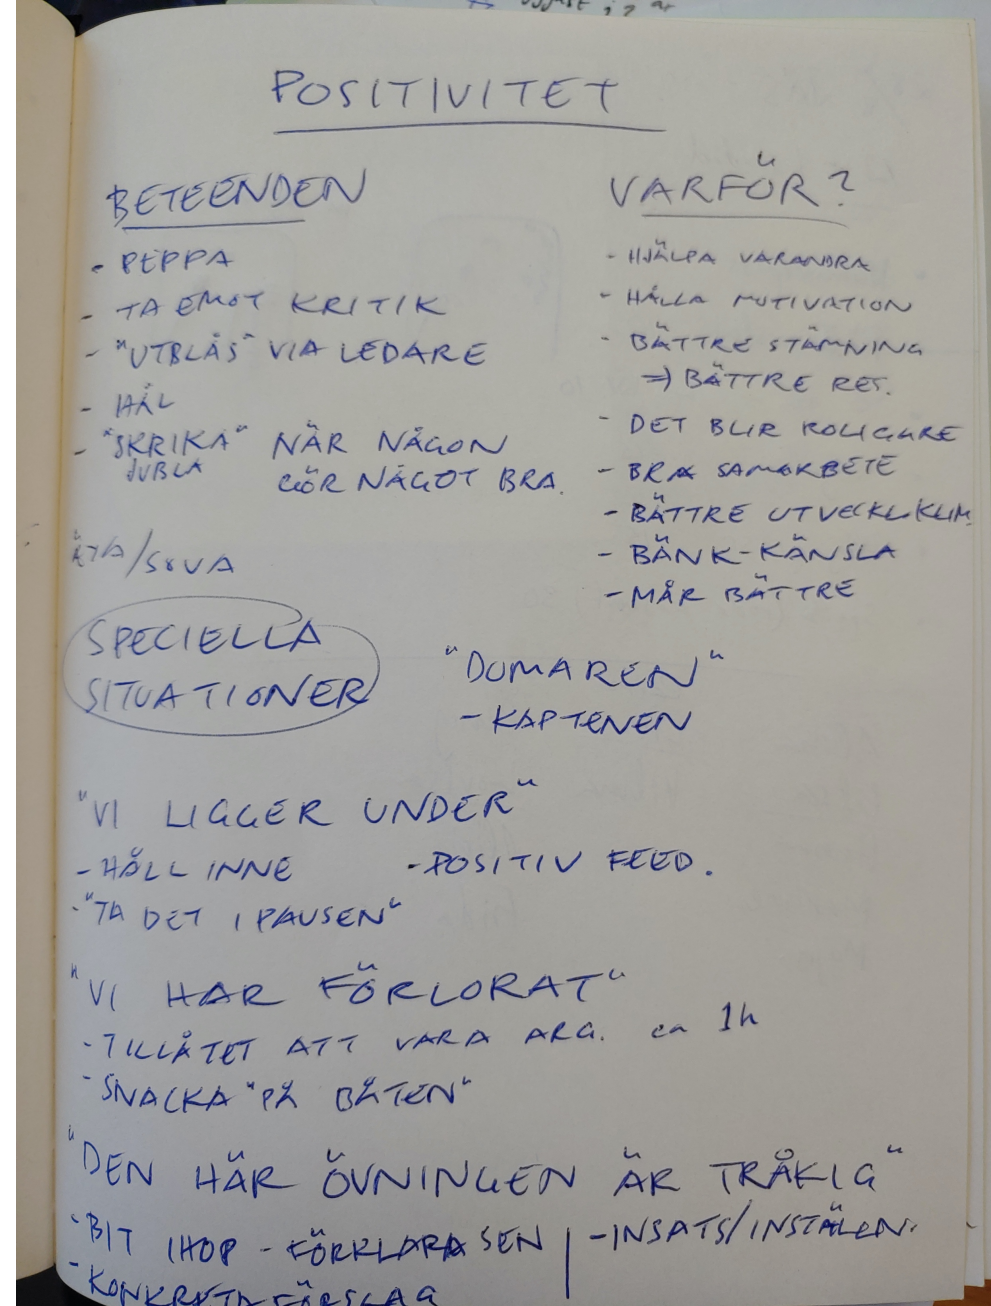 POSITIVITET
BETEENDEN
- PEPPA
- TA EMOT KRITIK
- "UTBLÅS" VIA LEDARE
- HÅL
- "SKRIKA" NÄR NÅGON
JUBLA GÖR NÅGOT BRA.
ÄTA/SOVA
VARFÖR?
- HJÄLPA VARANDRA
- HÅLLA MOTIVATION
- BÄTTRE STÄMNING
=> BÄTTRE RES.
- DET BLIR ROLIGARE
- BRA SAMARBETE
- BÄTTRE UTVECKL.KLIM.
- BÄNK-KÄNSLA
- MÅR BÄTTRE
SPECIELLA
SITUATIONER
"DOMAREN"
- KAPTENEN
"VI LIGGER UNDER"
- HÅLL INNE - POSITIV FEED.
- "TA DET I PAUSEN"
"VI HAR FÖRLORAT"
- TILLÅTET ATT VARA ARG. ca 1h
- SNACKA "PÅ BÅTEN"
"DEN HÄR ÖVNINGEN ÄR TRÅKIG"
- BIT IHOP - FÖRKLARA SEN | - INSATS/INSTÄLLN.
- KONKRETA FÖRSLAG